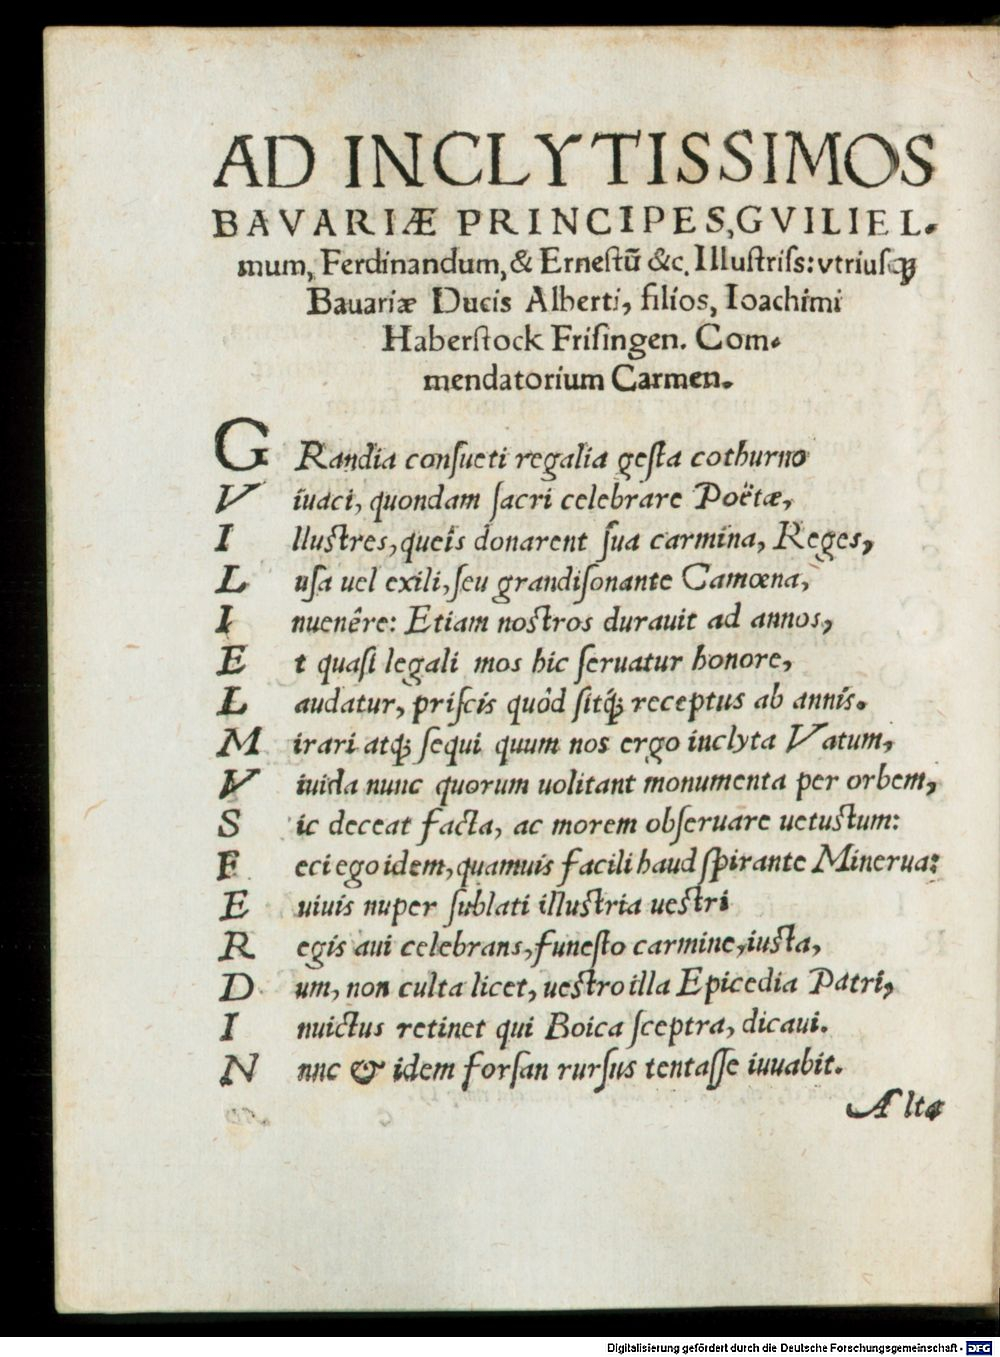 AD INCLYTISSIMOS
BAVARIÆ PRINCIPES, GVILIEL-
mum, Ferdinandum, & Ernestũ &c. Illustriss: vtriusq́;
Bauariæ Ducis Alberti, filios, Ioachimi
Haberstock Frisingen. Com-
mendatorium Carmen.
G Randia consueti regalia gesta cothurno
V iuaci, quondam sacri celebrare Poëtæ,
I llustres, queîs donarent sua carmina, Reges,
L usa uel exili, seu grandisonante Camœna,
I nuenêre: Etiam nostros durauit ad annos,
E t quasi legali mos hic seruatur honore,
L audatur, priscis quòd sitq́; receptus ab annis.
M irari atq́; sequi quum nos ergo inclyta Vatum,
V iuida nunc quorum uolitant monumenta per orbem,
S ic deceat facta, ac morem obseruare uetustum:
F eci ego idem, quamuis facili haud spirante Minerua:
E uiuis nuper sublati illustria uestri
R egis aui celebrans, funesto carmine, iusta,
D um, non culta licet, uestro illa Epicedia Patri,
I nuictus retinet qui Boica sceptra, dicaui.
N nnc & idem forsan rursus tentasse iuuabit.
Alta
Digitalisierung gefördert durch die Deutsche Forschungsgemeinschaft - DFG